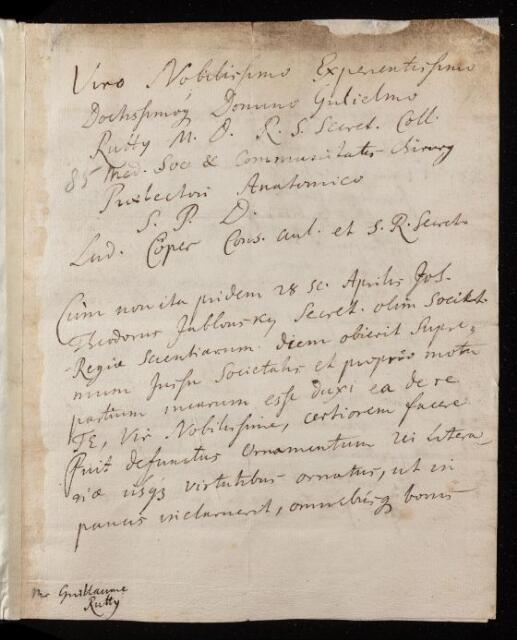 Viro Nobilissimo Experientissimo
Doctissimoq Domino Gulielmo
Rutty M. D. R. S. Secret. Coll.
85 Med. Soc. & Communitatis Chirurg
Prælectori Anatomico
S. P. D.
Lud. Coper Cons. aul. et S. R. Secret.
Cùm non ita pridem 28 sc. Aprilis Jos.
Theodorus Jablonsky Secret. olim Societ.
Regiæ Scientiarum diem obierit Supre-
mum Jussu Societatis et proprio motu
partium mearum esse duxi ea de re
TE, Vir Nobilissime, certiorem facere
Fuit defunctus Ornamentum rei litera-
riæ iisq; virtutibus ornatus, ut in
paucis inclaruerit, omnibusq; bonis
Mr Guillaume
Rutty